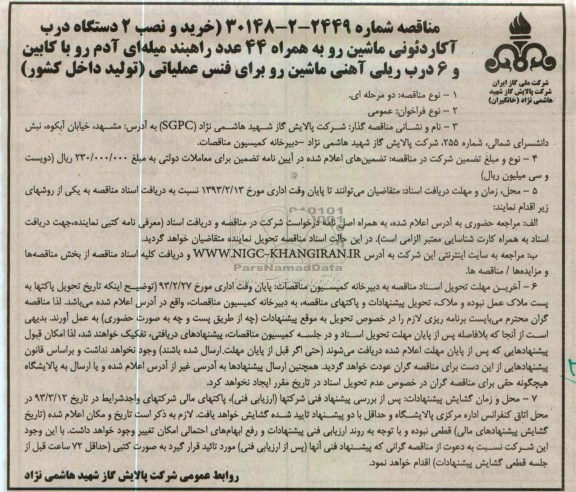 مناقصه شماره ۲۴۴۹-۲-۳۰۱۴۸ (خرید و نصب ۲ دستگاه درب
آکاردئونی ماشین رو به همراه ۴۴ عدد راهبند میله‌ای آدم رو با کابین
و ۶ درب ریلی آهنی ماشین رو برای فنس عملیاتی (تولید داخل کشور)
شرکت ملی گاز ایران
شرکت پالایش گاز شهید
هاشمی نژاد (خانگیران)
۱ - نوع مناقصه: دو مرحله ای.
۲ - نوع فراخوان: عمومی
۳ - نام و نشانی مناقصه گذار: شرکت پالایش گاز شهید هاشمی نژاد (SGPC) به آدرس: مشهد، خیابان آبکوه، نبش
دانشسرای شمالی، شماره ۲۵۵، شرکت پالایش گاز شهید هاشمی نژاد –دبیرخانه کمیسیون مناقصات.
۴ - نوع و مبلغ تضمین شرکت در مناقصه: تضمین‌های اعلام شده در آیین نامه تضمین برای معاملات دولتی به مبلغ ۲۳۰/۰۰۰/۰۰۰ ریال (دویست
و سی میلیون ریال)
۵ - محل، زمان و مهلت دریافت اسناد: متقاضیان می‌توانند تا پایان وقت اداری مورخ ۱۳۹۳/۲/۱۳ نسبت به دریافت اسناد مناقصه به یکی از روشهای
زیر اقدام نمایند:
الف: مراجعه حضوری به آدرس اعلام شده، به همراه اصل نامه درخواست شرکت در مناقصه و دریافت اسناد (معرفی نامه کتبی نماینده،جهت دریافت
اسناد به همراه کارت شناسایی معتبر الزامی است). در این حالت اسناد مناقصه تحویل نماینده متقاضیان خواهد گردید.
ب: مراجعه به سایت اینترنتی این شرکت به آدرس WWW.NIGC-KHANGIRAN.IR و دریافت کلیه اسناد مناقصه از بخش مناقصه‌ها
و مزایده‌ها / مناقصه ها.
ParsNamadData
۶ - آخرین مهلت تحویل اسناد مناقصه به دبیرخانه کمیسیون مناقصات: پایان وقت اداری مورخ ۹۳/۲/۲۷ (توضیح اینکه تاریخ تحویل پاکتها به
پست ملاک عمل نبوده و ملاک، تحویل پیشنهادات و پاکتهای مناقصه، به دبیرخانه کمیسیون مناقصات، واقع در آدرس اعلام شده می‌باشد. لذا مناقصه
گران محترم می‌بایست برنامه ریزی لازم را در خصوص تحویل به موقع پیشنهادات (چه از طریق پست و چه به صورت حضوری) به عمل آورند. بدیهی
است از آنجا که بلافاصله پس از پایان مهلت تحویل اسناد و در جلسه کمیسیون مناقصات، پیشنهادهای دریافتی، تفکیک خواهند شد، لذا امکان قبول
پیشنهادهایی که پس از پایان مهلت اعلام شده دریافت می‌شوند (حتی اگر قبل از پایان مهلت،ارسال شده باشند) وجود نخواهد نداشت و براساس قانون
پیشنهادهایی از این دست برای مناقصه گران عودت خواهد گردید. همچنین ارسال پیشنهادها به آدرسی غیر از آدرس اعلام شده و یا ارسال به پالایشگاه
هیچگونه حقی برای مناقصه گران در خصوص عدم تحویل اسناد در تاریخ مقرر ایجاد نخواهد کرد.
۷ - محل و زمان گشایش پیشنهادات: پس از بررسی پیشنهاد فنی شرکتها (ارزیابی فنی)، پاکتهای مالی شرکتهای واجدشرایط در تاریخ ۹۳/۳/۱۲ در
محل اتاق کنفرانس اداره مرکزی پالایشگاه و حداقل با دو پیشنهاد تایید شده گشایش خواهد یافت. لازم به ذکر است تاریخ و مکان اعلام شده (تاریخ
گشایش پیشنهادهای مالی) قطعی نبوده و با توجه به روند ارزیابی فنی پیشنهادات و رفع ابهام‌های احتمالی امکان تغییر وجود خواهد داشت. با این وجود
این شرکت نسبت به دعوت از مناقصه گرانی که پیشنهاد فنی آنها (پس از ارزیابی فنی) مورد تائید قرار گیرد به صورت کتبی (حداقل ۷۲ ساعت قبل از
جلسه قطعی گشایش پیشنهادات) اقدام خواهد نمود.
روابط عمومی شرکت پالایش گاز شهید هاشمی نژاد